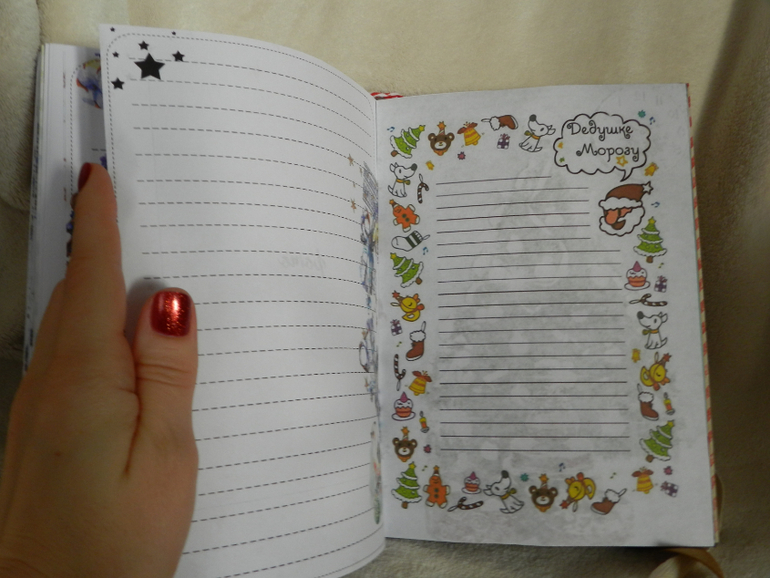 Дедушке
Морозу